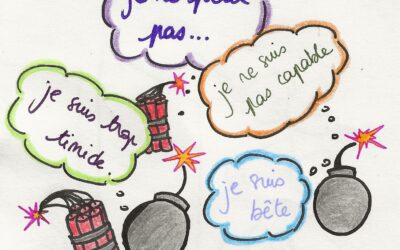 je ne
pas...
je ne suis
pas capable
je suis trop
timide.
je suis
bête